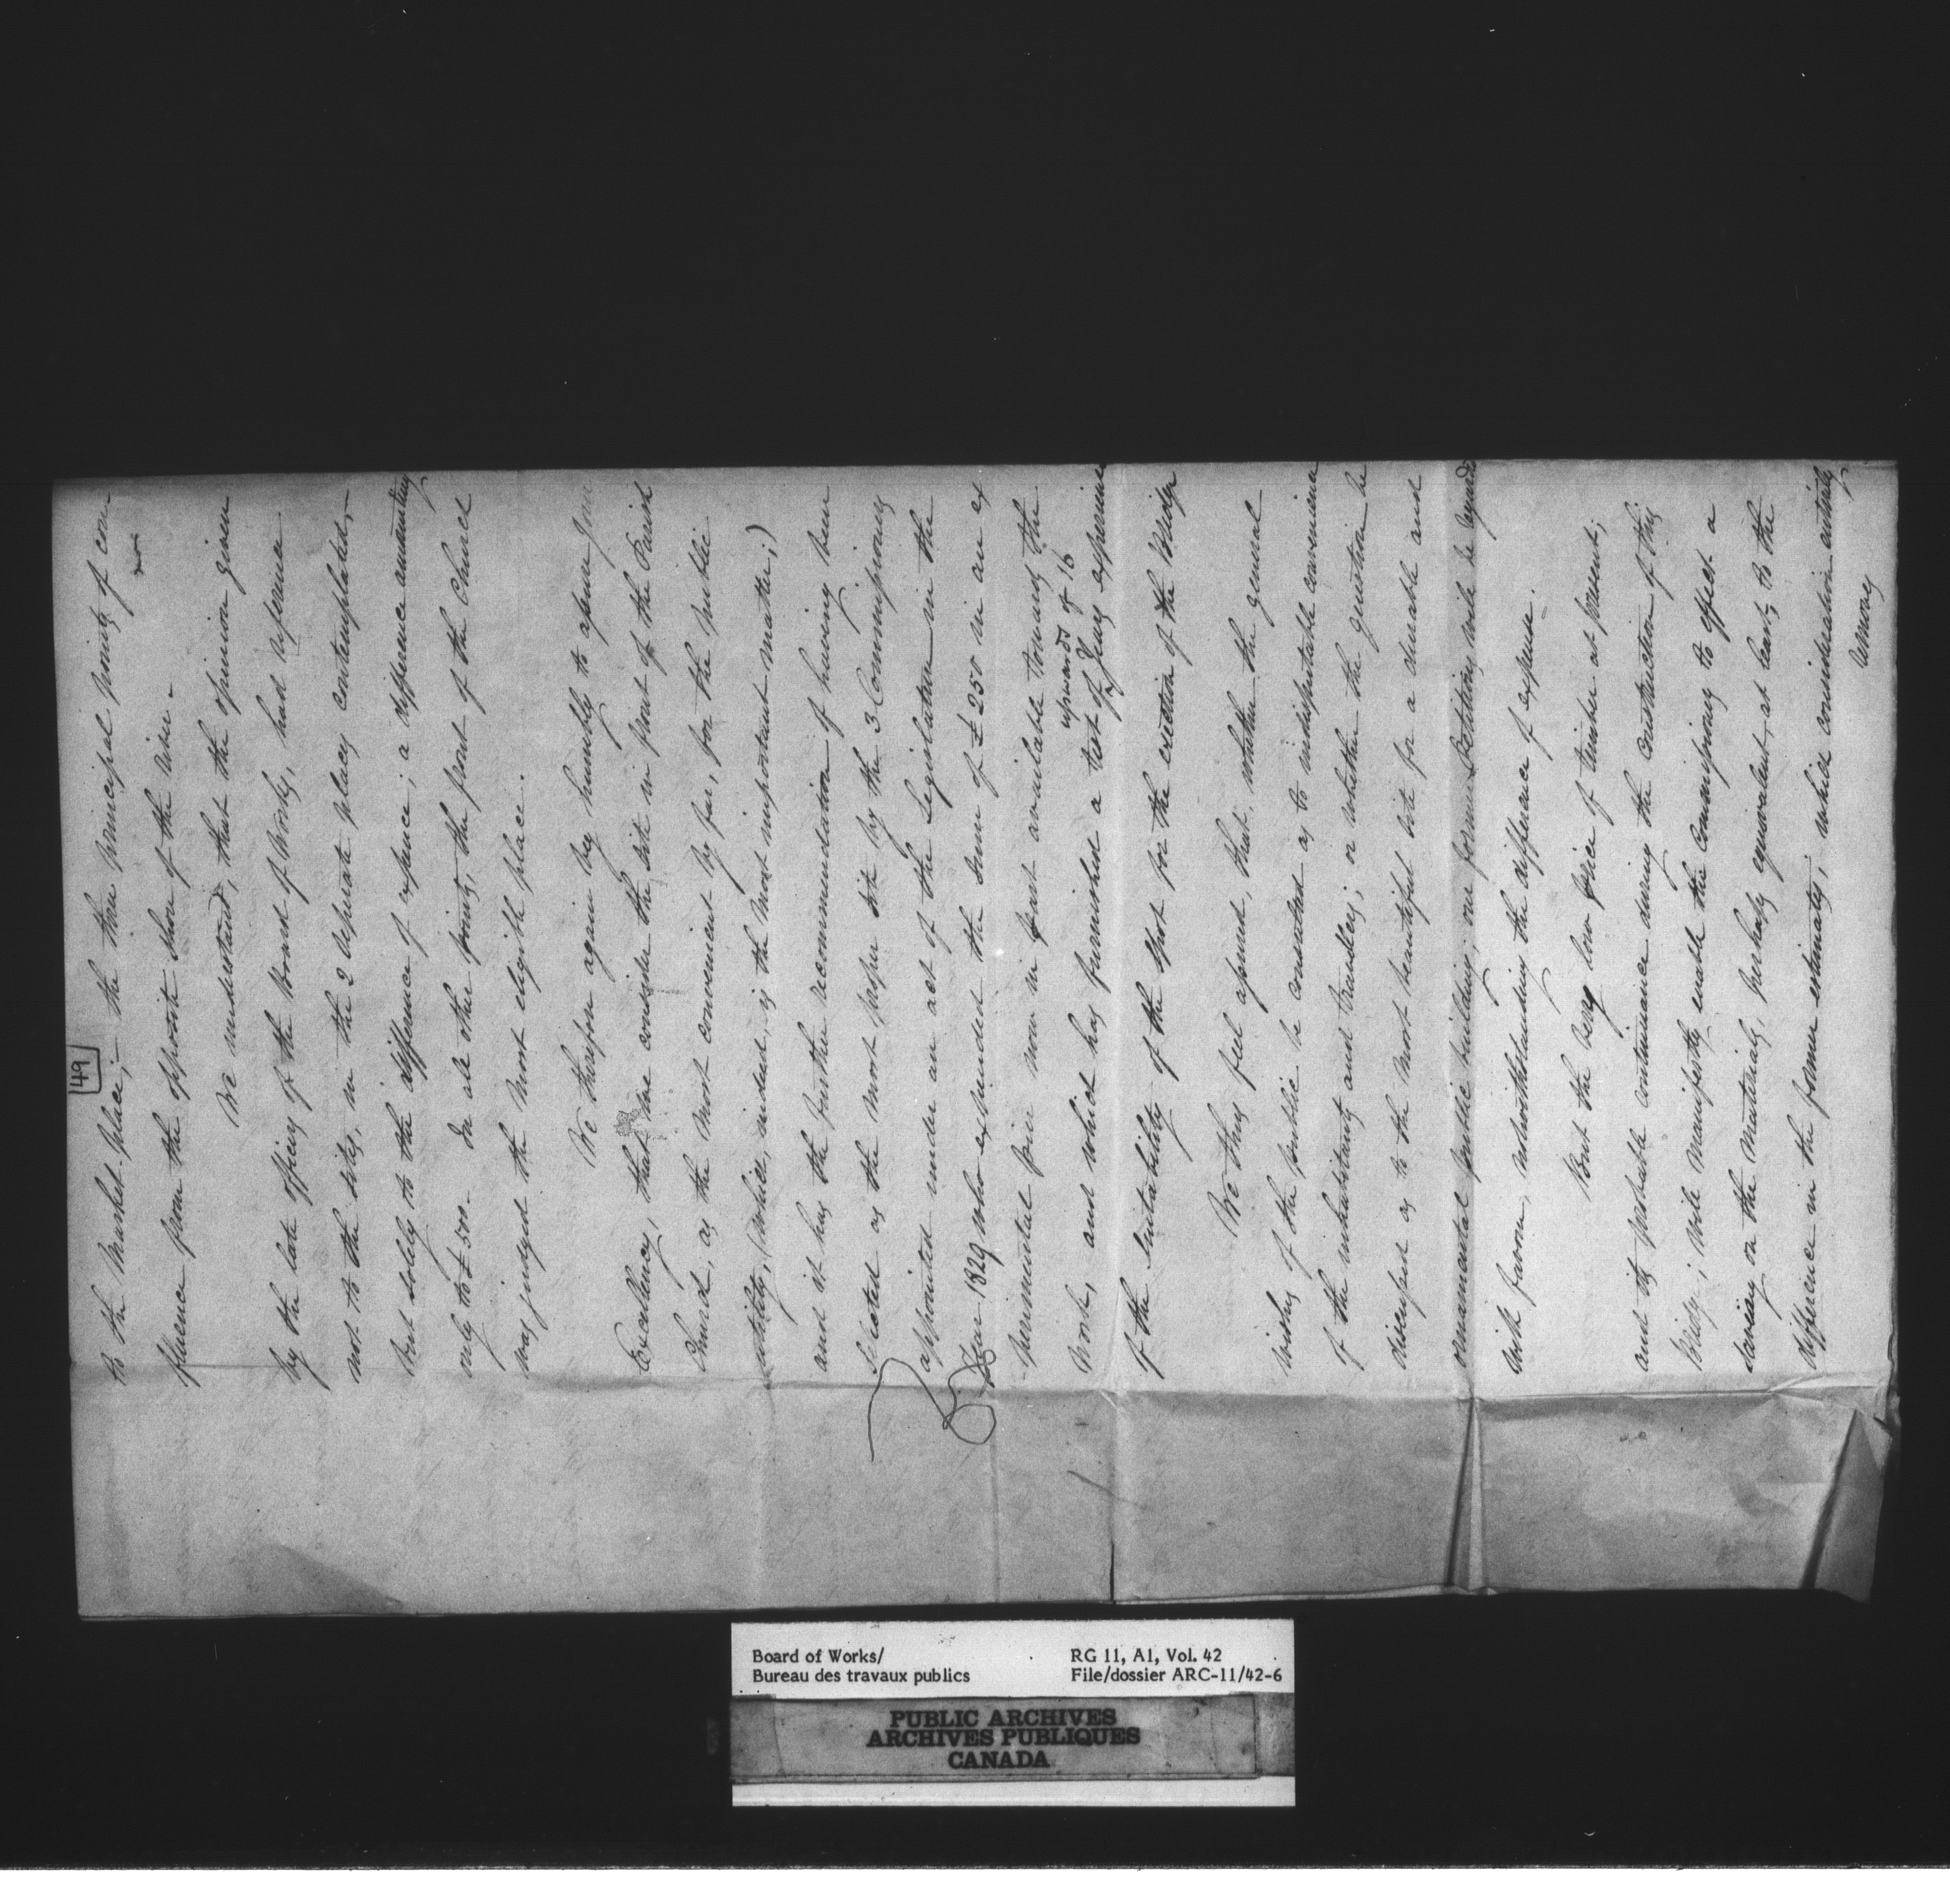 49
to the Market-place; the three principal points of con
fluence from the opposite shore of the river.
We understand, that the opinion given
by the late officers of the Board of Works, had reference
not to the sites, in the 2 separate places contemplated,
but solely to the difference of expence; a difference amounting
only to £500. In all other points, the front of the Church
was judged the most eligible place.
We therefore again beg humbly to assure Your
Excellency, that we consider the site in front of the Parish
Church, as the most convenient by far, for the public
utility, (which, indeed, is the most important matter;)
and it has the further recommendation of having been
selected as the most proper site by the 3 Commissioners
appointed under an act of the Legislature in the
Year 1829 who expended the sum of £250 in an ex
perimental pier now in part available towards the
work, and which has furnished a test of upwards of 16 years experience
of the suitability of the spot for the erection of the Bridge
We thus feel assured, that, whether the general
wishes of the public be consulted as to indisputable convenience
of the inhabitants and travellers; or whether the question be
discussed as to the most beautiful site for a durable and
ornamental public building; our former Petition will be viewed
with favor, notwithstanding the difference of expense.
But the very low price of timber at present;
and its probable continuance during the construction of this
bridge; will manifestly enable the Commissioners to effect a
saving on the materials, perhaps equivalent, at least, to the
difference in the former estimates; which consideration entirely
removes
Board of Works/
Bureau des travaux publics
RG 11, A1, Vol. 42
File/dossier ARC-11/42-6
PUBLIC ARCHIVES
ARCHIVES PUBLIQUES
CANADA